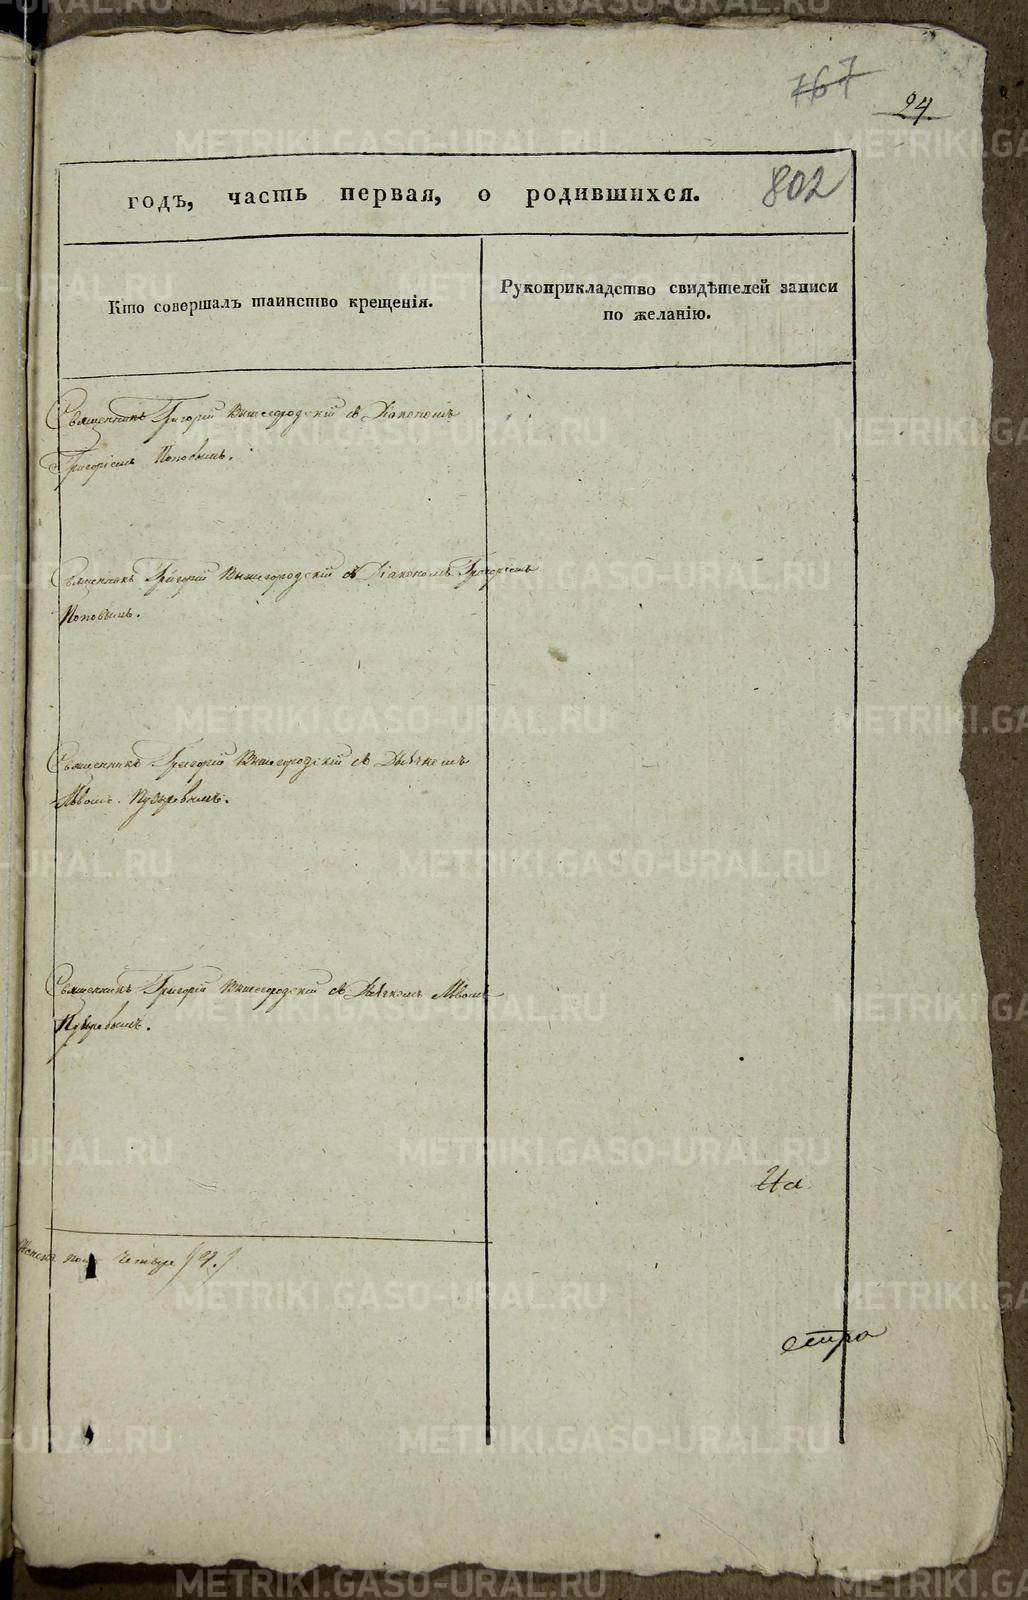 767
24.
годъ, часть первая, о родившихся.
802
Кто совершалъ таинство крещенія.
Рукоприкладство свидѣтелей записи
по желанію.
Священникъ Григорій Вышегородскій съ Діакономъ
Григоріемъ Поповымъ.
Священникъ Григорій Вышегородскій съ Діакономъ Григоріемъ
Поповымъ.
Священникъ Григорій Вышегородскій съ Дьячкомъ
Львомъ Пузыревымъ.
Священникъ Григорій Вышегородскій съ Дьячкомъ Львомъ
Пузыревымъ.
На
Женска пола четыре (4.)
стра
METRIKI.GASO-URAL.RU